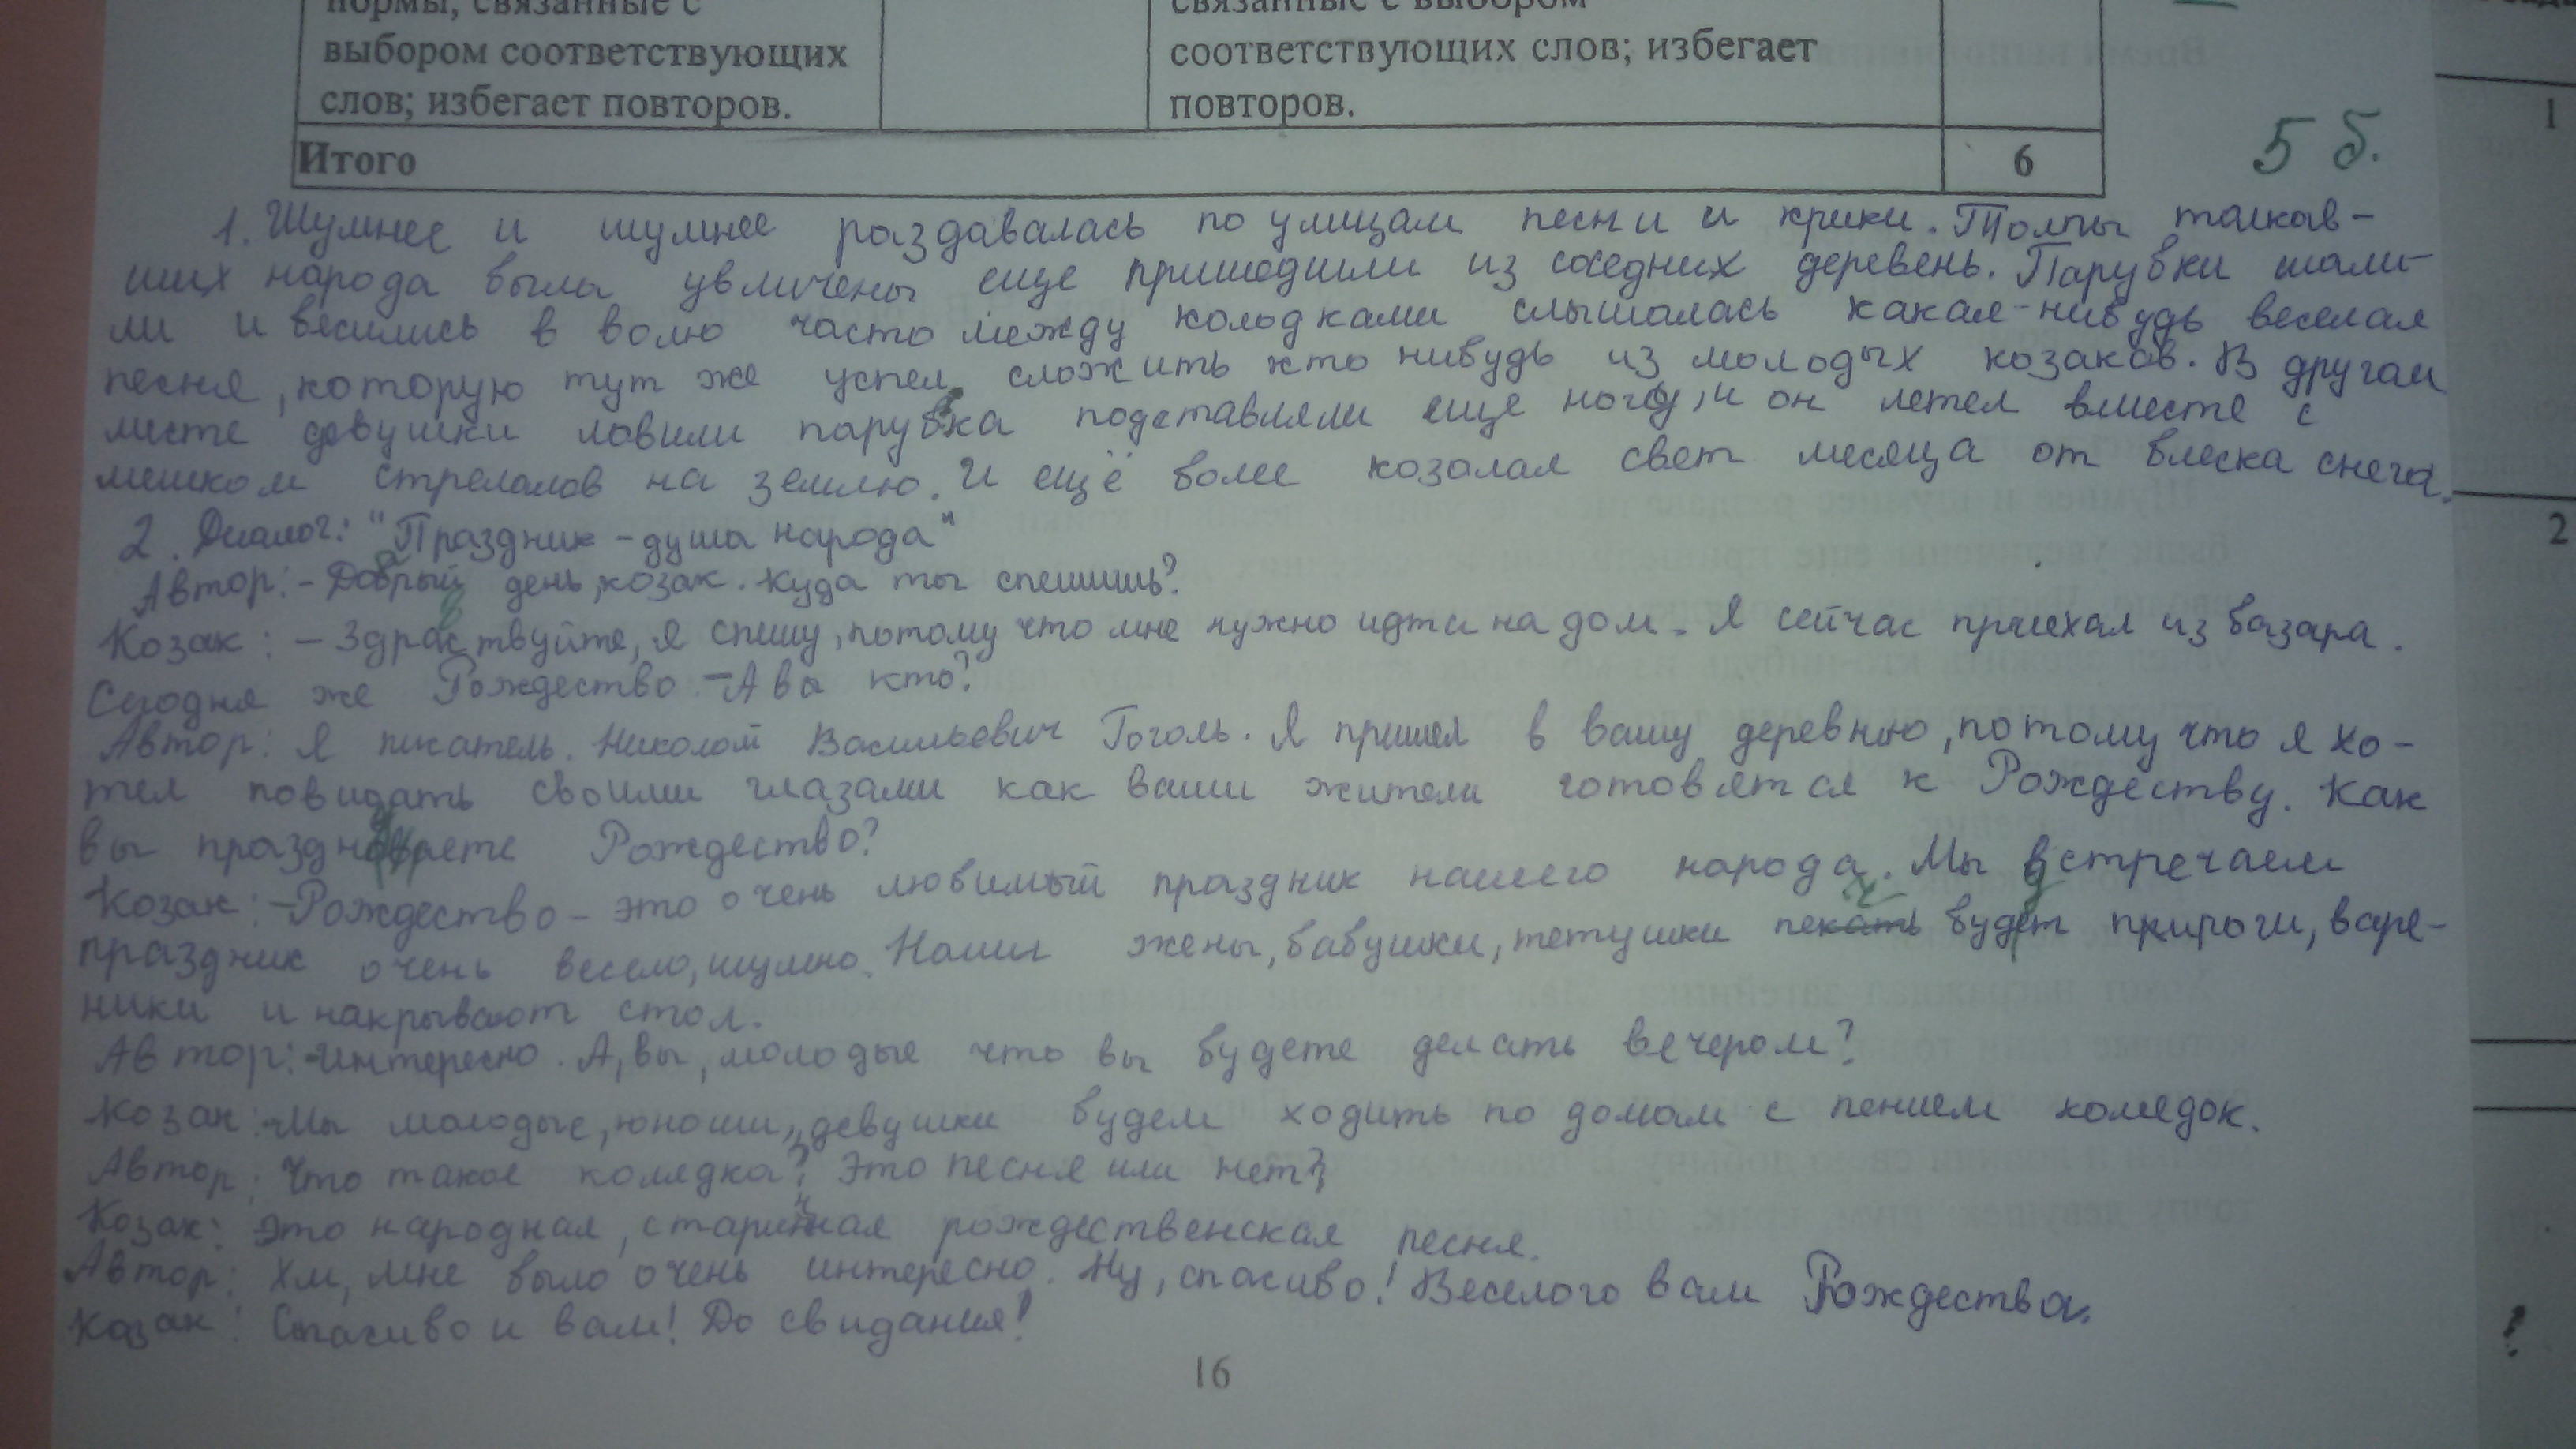 нормы, связанные с
связанные с выбором
выбором соответствующих
соответствующих слов; избегает
слов; избегает повторов.
повторов.
Итого 6
5 б.
1
2
1. Шумнее и шумнее раздавалась по улицам песни и крики. Толпы толкав-
ших народа были увличены еще пришедшими из соседних деревень. Парубки шали-
ли и весились в волю часто между колодками слышалась какая-нибудь веселая
песня, которую тут же успел сложить кто нибудь из молодых козаков. В другом
месте девушки ловили парубка подставляли еще ногу, и он летел вместе с
мешком стрелалов на землю. И ещё более козалая свет месяца от блеска снега.
2. Диалог: "Праздник - душа народа"
Автор: - Добрый день, козак. Куда ты спешишь?
Козак: - Здраствуйте, я спешу, потому что мне нужно идти на дом. Я сейчас приехал из базара.
Сегодня же Рождество. - А вы кто?
Автор: Я писатель. Николай Васильевич Гоголь. Я пришел в вашу деревню, потому что я хо-
тел повидать своими глазами как ваши жители готовятся к Рождеству. Как
вы празднуете Рождество?
Козак: - Рождество - это очень любимый праздник нашего народа. Мы встречаем
праздник очень весело, шумно. Наши жены, бабушки, тетушки будет пироги, варе-
ники и накрывают стол.
Автор: - Интересно. А, вы, молодые что вы будете делать вечером?
Козак: - Мы молодые, юноши, девушки будем ходить по домам с пением колядок.
Автор: Что такое колядка? Это песня или нет?
Козак: Это народная, старинная рождественская песня.
Автор: Хм, мне было очень интересно. Ну, спасибо! Веселого вам Рождества.
Козак: Спасибо и вам! До свидания!
16